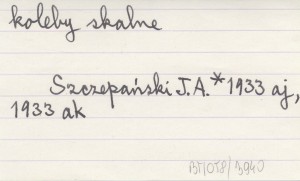 koleby skalne
Szczepański J.A.* 1933 aj,
1933 ak